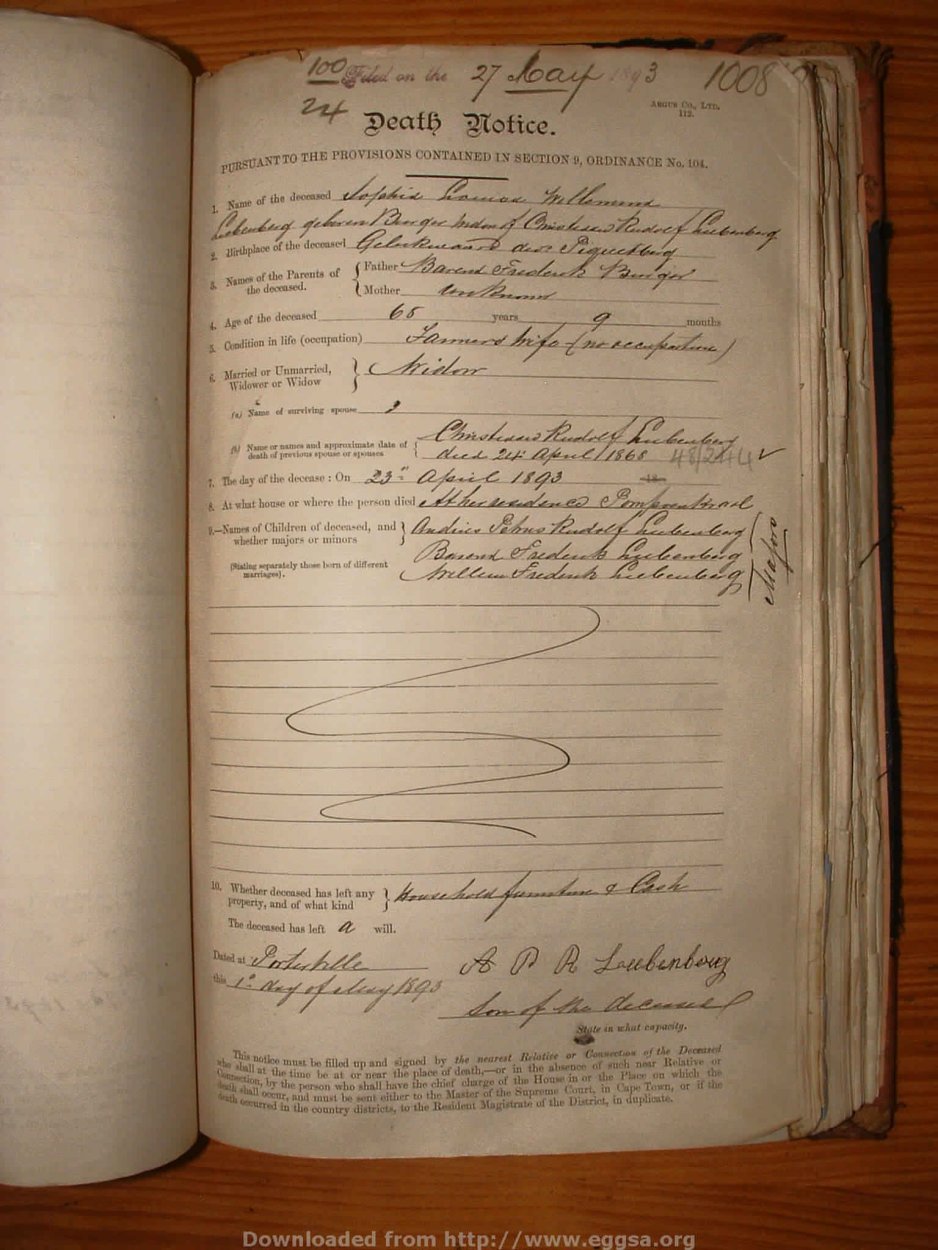 100 Filed on the 27 May 1893 1008
24
ARGUS CO., LTD.
112.
Death Notice.
PURSUANT TO THE PROVISIONS CONTAINED IN SECTION 9, ORDINANCE No. 104.
1. Name of the deceased Sophia Louisa Willemina
Liebenberg geboren Burger Widow of Christiaan Rudolf Liebenberg
2. Birthplace of the deceased Gelukwaard Piquetberg
3. Names of the Parents of the deceased. Father Barend Frederik Burger
Mother unknown
4. Age of the deceased 68 years 9 months
5. Condition in life (occupation) Farmers Wife (no occupation)
6. Married or Unmarried, Widower or Widow Widow
(a) Name of surviving spouse
(b) Name or names and approximate date of death of previous spouse or spouses Christiaan Rudolf Liebenberg
died 24 April 1868
7. The day of the decease: On 23 April 1893 18
8. At what house or where the person died At her residence Pompoenkraal
9.—Names of Children of deceased, and whether majors or minors Andries Petrus Rudolf Liebenberg
Barend Frederik Liebenberg
(Stating separately those born of different marriages). Willem Frederik Liebenberg
Majors
10. Whether deceased has left any property, and of what kind Household furniture & Cash
The deceased has left a will.
Dated at Porterville A P R Liebenberg
this 1st day of May 1893
Son of the deceased
State in what capacity.
This notice must be filled up and signed by the nearest Relative or Connection of the Deceased
who shall at the time be at or near the place of death,—or in the absence of such near Relative or
Connection, by the person who shall have the chief charge of the House in or the Place on which the
death shall occur, and must be sent either to the Master of the Supreme Court, in Cape Town, or if the
death occurred in the country districts, to the Resident Magistrate of the District, in duplicate.
Downloaded from http://www.eggsa.org